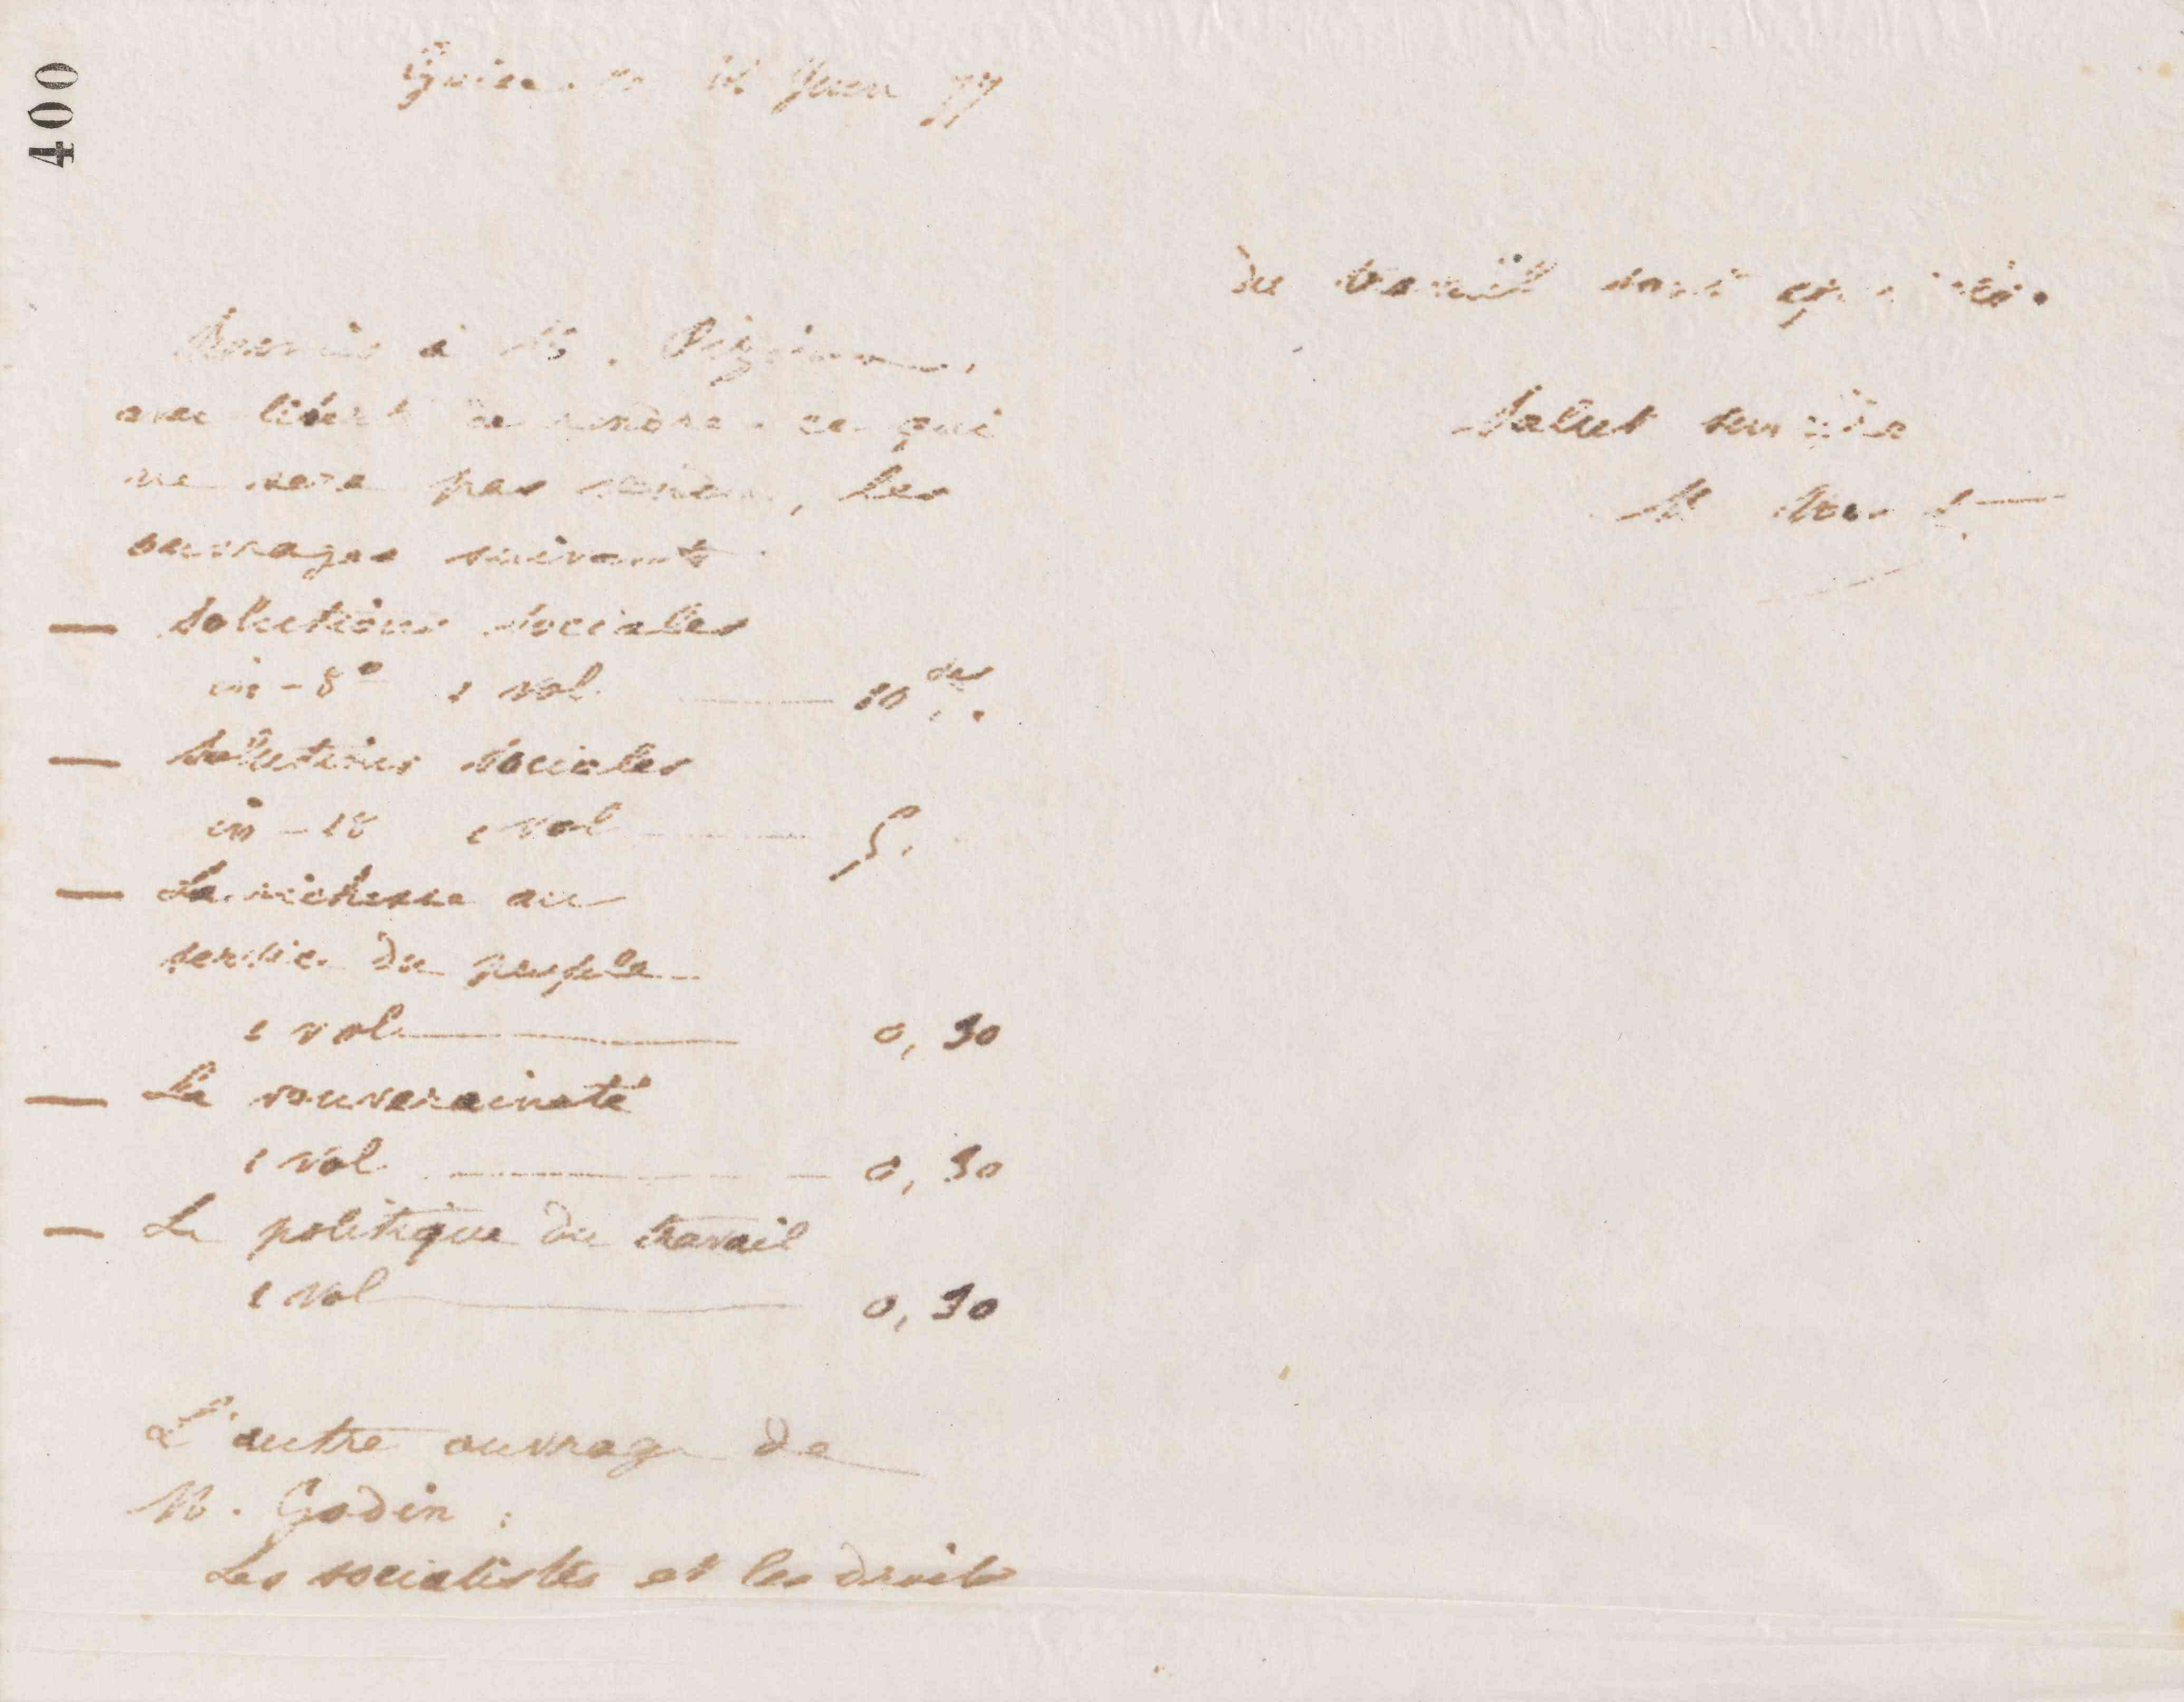 400
Guise 16 Juin 77
à M.
avec liberté de rendre ce qui
ne sera pas vendu, les
ouvrages suivants
— Solutions sociales
in-8° 1 vol 10
— Solutions sociales
in-18 1 vol 5.
— La richesse au
service du peuple
1 vol 0,50
— La souveraineté
1 vol 0,50
— La politique du travail
1 vol 0,50
L'autre ouvrage de
M. Godin :
Les socialistes et les droits
du travail sont épuisés.
Salut
M